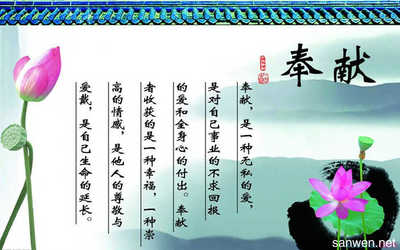 奉献
奉献，是一种无私的爱，
是对自己事业的不求回报
的爱和全身心的付出。奉献
者收获的是一种幸福，一种崇
高的情感，是他人的尊敬与
爱戴，是自己生命的延长。
sanwen.net